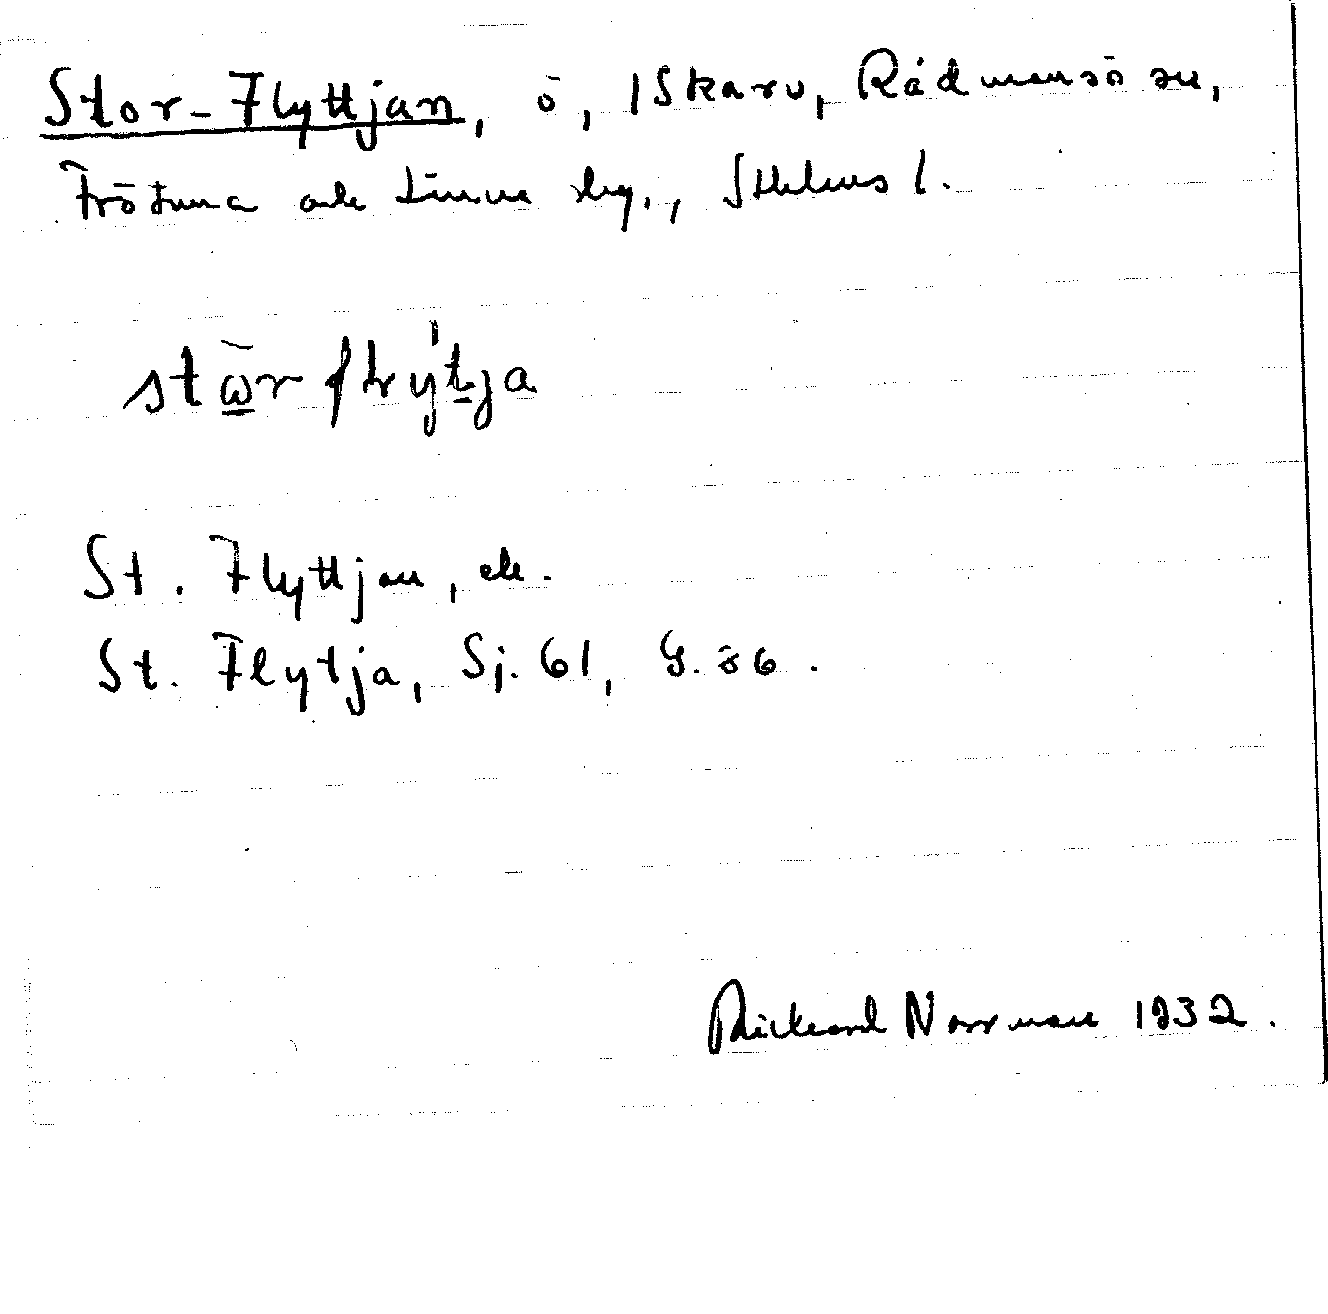 Stor-Flyttjan, ö, I Skarv, Rådmansö sn,
Frötuna och Länna skg., Sthlms l.
stω̄r flýtja
St. Flyttjan, ek.
St. Flytja, Sj. 61, G. 86.
Rickard Norrman 1932.